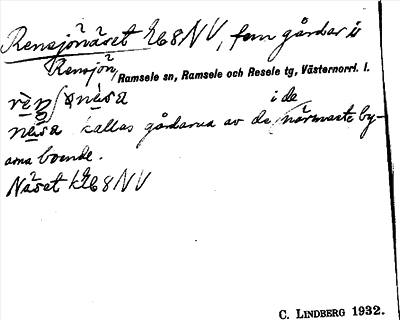 Rensjönäset K68NV, fem gårdar i
Rensjön, Ramsele sn, Ramsele och Resele tg, Västernorrl. l.
i de
näsa kallas gårdarna av de närmaste by-
arna boende.
Näset K68NV
C. LINDBERG 1932.